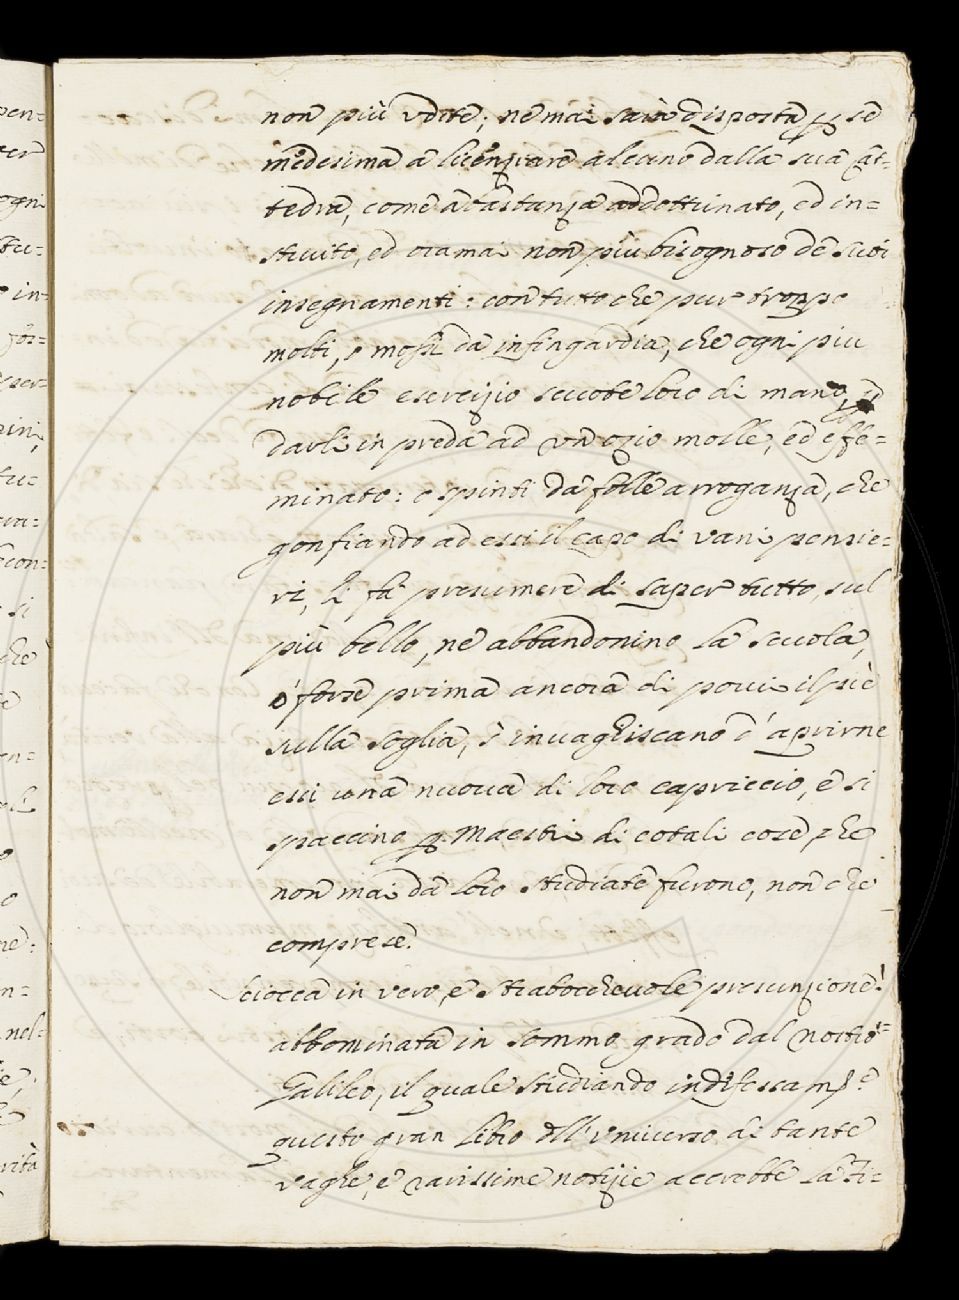 non più udite; ne mai sarà disposta per se
medesima a licenziare alcuno dalla sua Cat=
tedra, come abastanza addottrinato, ed in=
struito, ed oramai non più bisognoso de suoi
insegnamenti: con tutto che pur troppo
molti, o mossi da infingardia, che ogni più
nobile esercizio scuote loro di mano,
darli in preda ad un ozio molle, ed effe=
minato: o spinti da folle arroganza, che
gonfiando ad essi il capo di vani pensie=
ri, li fà presumere di saper tutto, sul
più bello, ne abbandonino la scuola,
ò forse prima ancora di porvi il piè
sulla soglia, s'invaghiscano d'aprirne
essi una nuova di loro capriccio, e si
spaccino per Maestri di cotali cose, che
non mai da loro studiate furono, non che
comprese.
Sciocca in vero, e strabocchevole presunzione!
abbominata in sommo grado dal nostro
Galileo, il quale studiando indifessam.e
questo gran libro dell'Universo di tante
vaghe, e rarissime notizie accrebbe la Fi=
pen=
ogni
stu=
in=
per=
si
che
nel=